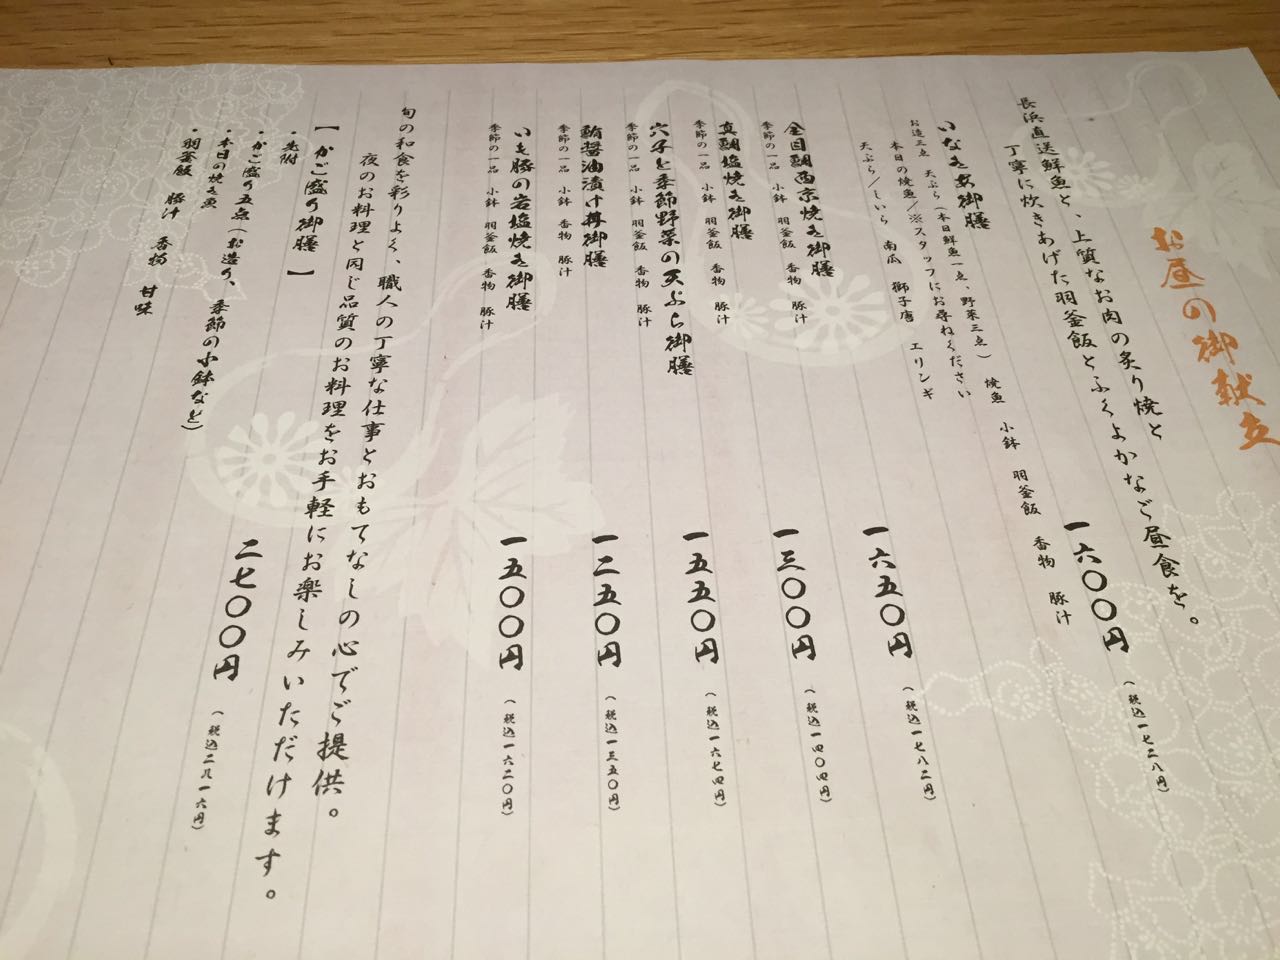 お昼の御献立
長浜直送鮮魚と、上質なお肉の炙り焼と
丁寧に炊きあげた羽釜飯とふくよかなご昼食を。
いなきあ御膳
一六〇〇円
(税込一七二八円)
お造三点 天ぷら(本日鮮魚一点、野菜三点) 焼魚 小鉢 羽釜飯 香物 豚汁
本日の焼魚/※スタッフにお尋ねください
天ぷら/しいら 南瓜 獅子唐 エリンギ
金目鯛西京焼き御膳
一六五〇円
(税込一七八二円)
季節の一品 小鉢 羽釜飯 香物 豚汁
真鯛塩焼き御膳
一三〇〇円
(税込一四〇四円)
季節の一品 小鉢 羽釜飯 香物 豚汁
穴子と季節野菜の天ぷら御膳
一五五〇円
(税込一六七四円)
季節の一品 小鉢 羽釜飯 香物 豚汁
鮪醤油漬け丼御膳
一二五〇円
(税込一三五〇円)
季節の一品 小鉢 香物 豚汁
いも豚の岩塩焼き御膳
一五〇〇円
(税込一六二〇円)
季節の一品 小鉢 羽釜飯 香物 豚汁
旬の和食を彩りよく、職人の丁寧な仕事とおもてなしの心でご提供。
夜のお料理と同じ品質のお料理をお手軽にお楽しみいただけます。
【かご盛り御膳】
二七〇〇円
(税込二九一六円)
・先附
・かご盛り五点(お造り、季節の小鉢など)
・本日の焼き魚
・羽釜飯 豚汁 香物 甘味